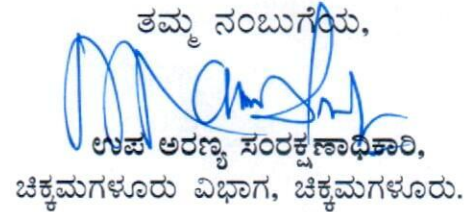 ತಮ್ಮ ನಂಬುಗೆಯ,
ಉಪ ಅರಣ್ಯ ಸಂರಕ್ಷಣಾಧಿಕಾರಿ,
ಚಿಕ್ಕಮಗಳೂರು ವಿಭಾಗ, ಚಿಕ್ಕಮಗಳೂರು.